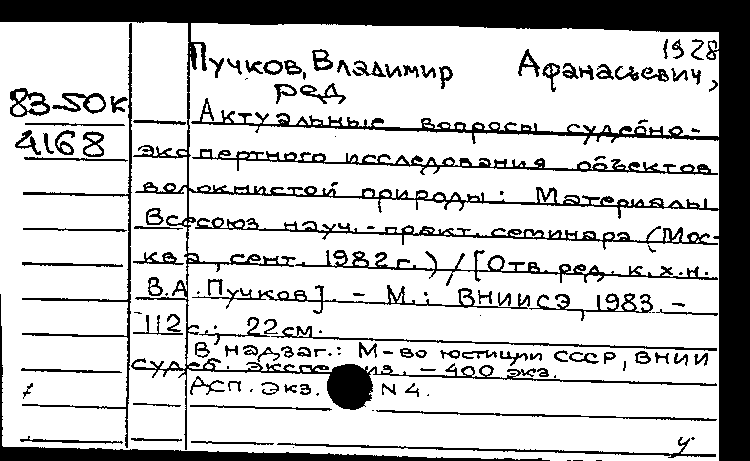 1928
Пучков, Владимир Афанасьевич,
ред
83-50к
4168
Актуальные вопросы судебно-
экспертного исследования объектов
волокнистой природы: Материалы
Всесоюз науч.-практ. семинара (Мос-
ква, сент. 1982 г.) / [Отв. ред. к.х.н.
В.А. Пучков]. - М.: ВНИИСЭ, 1983. -
112 с.; 22 см.
В надзаг.: М-во юстиции СССР, ВНИИ
судеб. экспертиз. - 400 экз.
N 4.